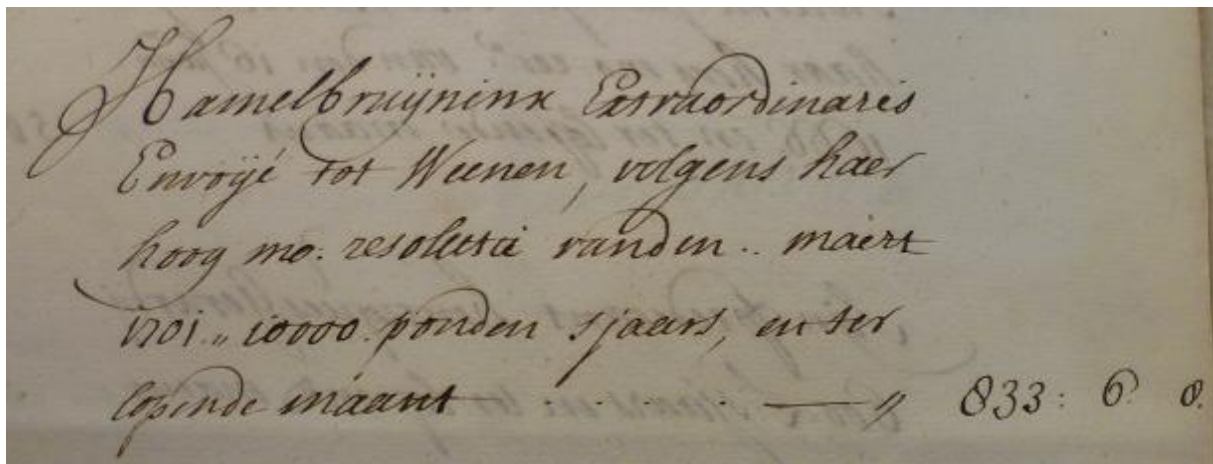 Hamelbruijninx Extraordinaris
Envoijé tot Weenen, volgens haer
hoog mo: resolutie vanden .. maert
1701 „ 10000 ponden sjaars, en ter
lopende maant - . . . . . . — „ 833: 6 8.